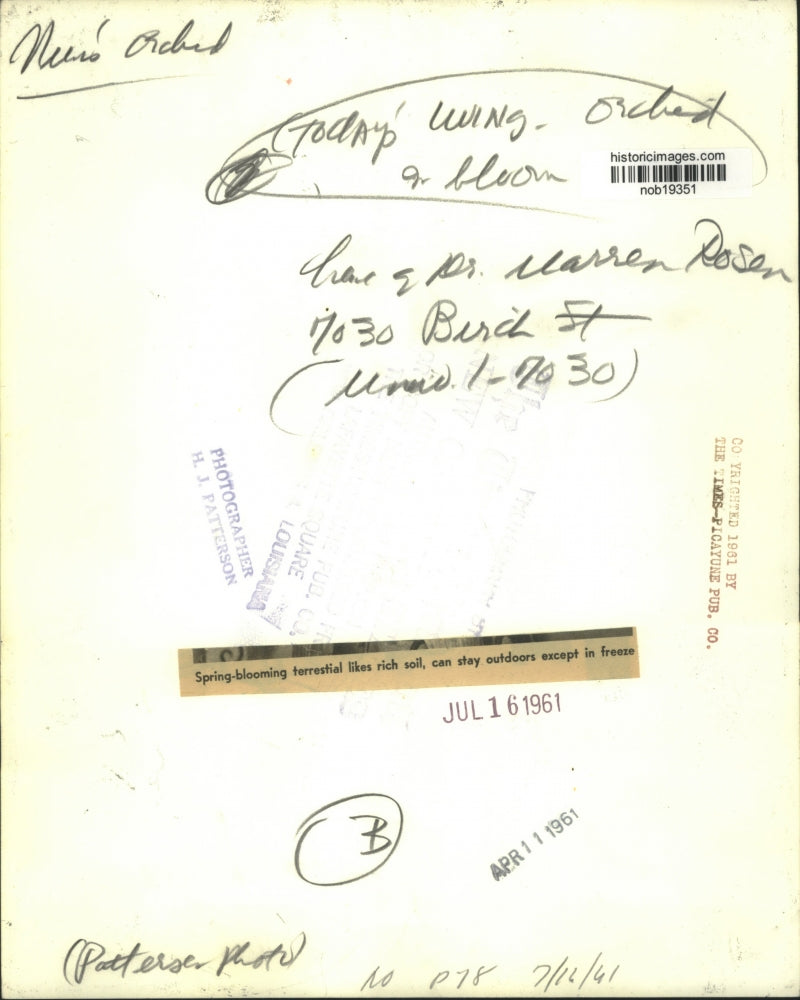 Nun's Orchid
(Today's Living - Orchid
in bloom
historicimages.com
nob19351
home of Dr. Warren Rosen
7030 Birch St
(Univ. 1-7030)
PHOTOGRAPHER
H. J. PATTERSON
LOUISIANA
SQUARE
PUB. CO.
CO YRIGHTED 1961 BY
THE TIMES-PICAYUNE PUB. CO.
Spring-blooming terrestial likes rich soil, can stay outdoors except in freeze
JUL 16 1961
B
APR 11 1961
(Patterson Photo)
NO P78 7/16/61